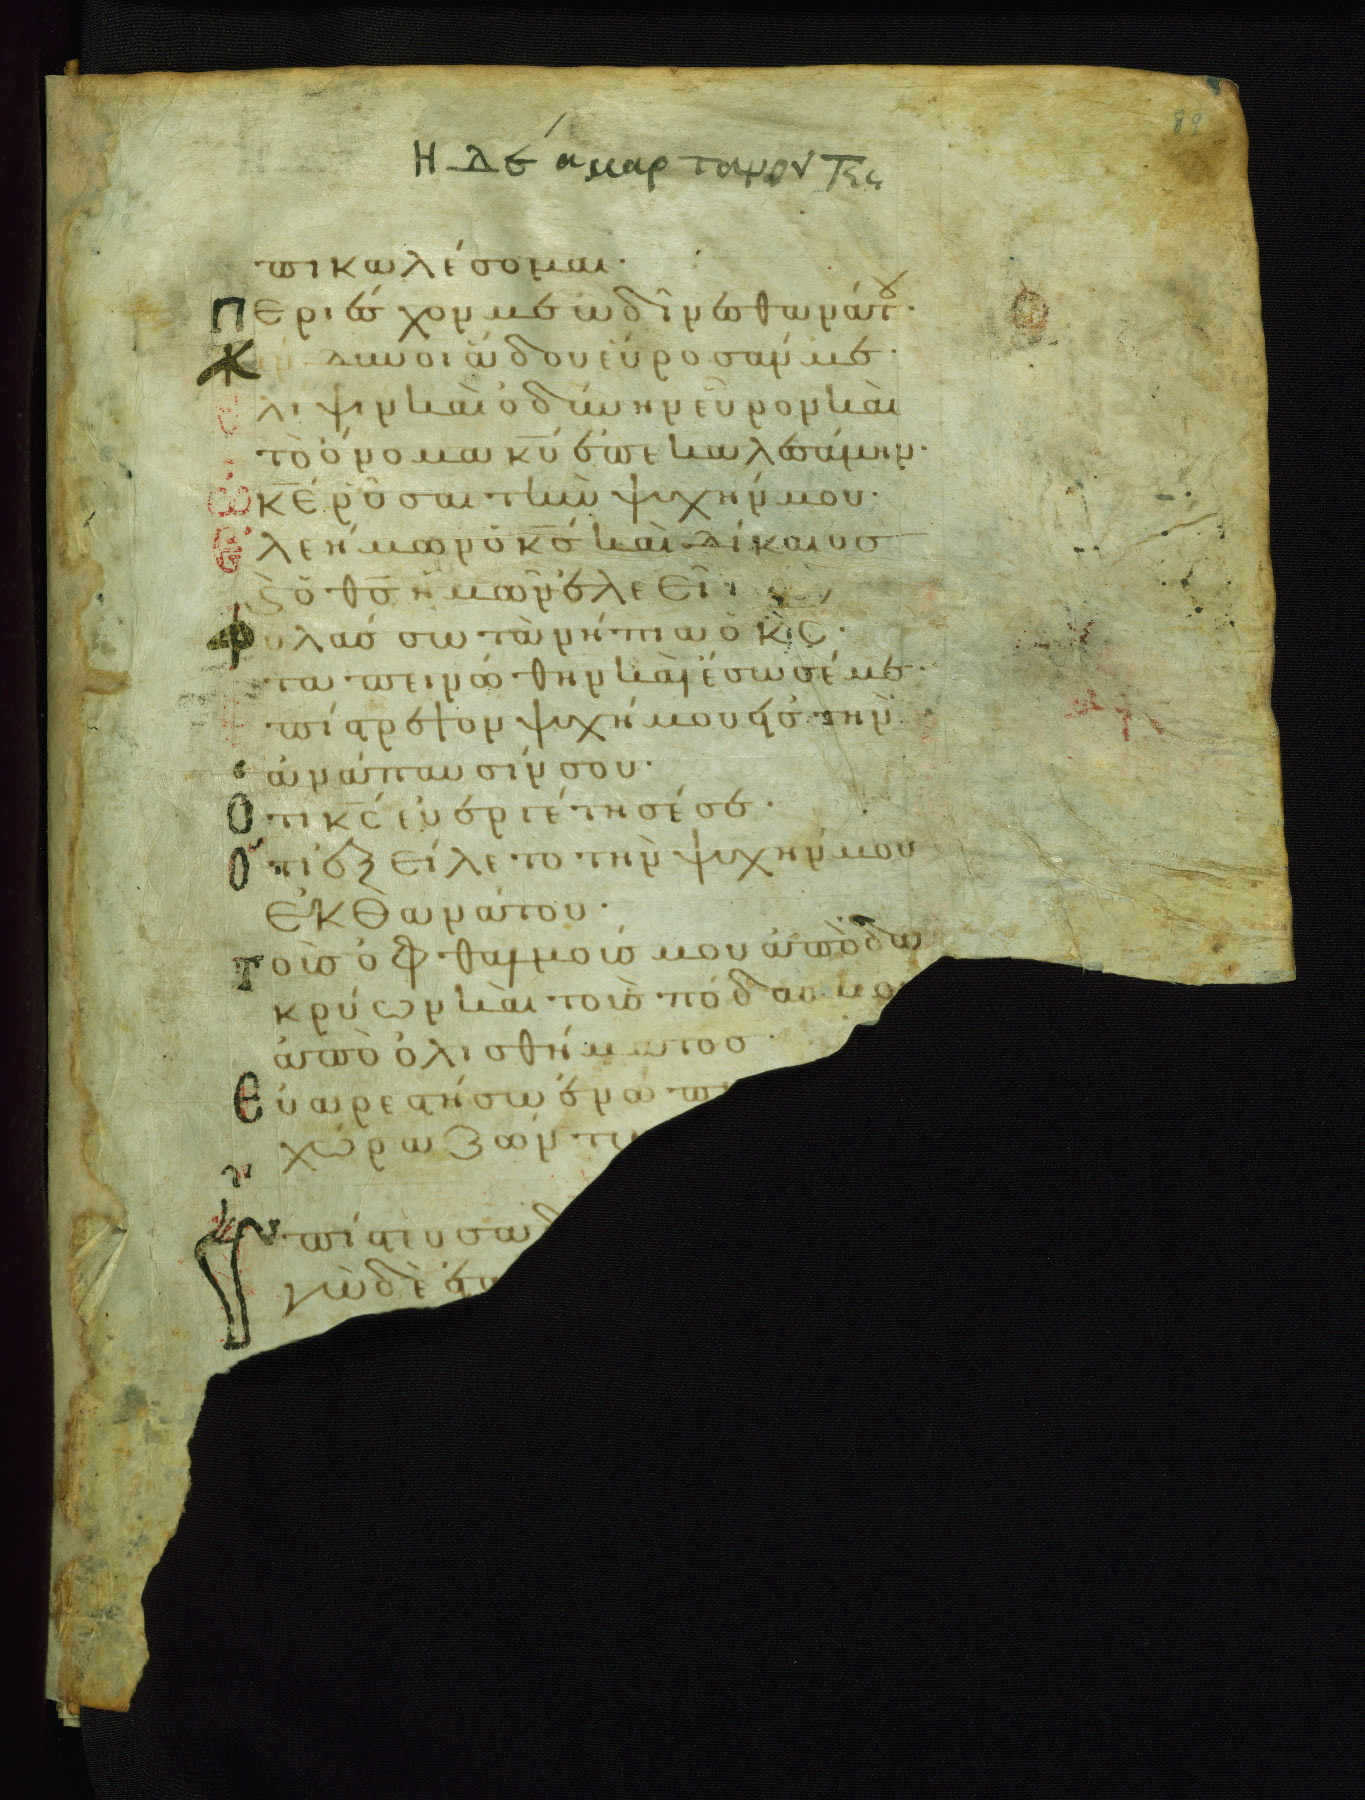 89
Η Δε ἁμαρτανον τες
πικαλέσομαι·
Περιέσχον με ὠδῖνες θανάτου·
Κίνδυνοι ἅδου εὕροσάν με·
λιψιν καὶ ὀδύνην εὗρον καὶ
τὸ ὄνομα κ̅υ̅ ἐπεκαλεσάμην·
κ̅ε̅ ῥῦσαι τὴν ψυχήν μου·
Ἐλεήμων ὁ κ̅ς̅ καὶ δίκαιος
ϗ ὁ θ̅ς̅ ἡμῶν ἐλεεῖ·
Φυλάσσων τὰ νήπια ὁ κ̅ς̅·
ταπεινώθην καὶ ἔσωσέ με·
πίστρεψον ψυχή μου εἰς τὴν
ἀνάπαυσίν σου·
Ὅτι κ̅ς̅ εὐεργέτησέ σε·
Ὅτι ἐξείλετο τὴν ψυχήν μου
ἐκ θανάτου·
Τοὺς ὀφθαλμούς μου ἀπὸ δα
κρύων καὶ τοὺς πόδας μο
ἀπὸ ὀλισθήματος·
Εὐαρεστήσω ἐνώπι
χώρα ζών τω
πίστευσα δ
γὼ δὲ ἐτα